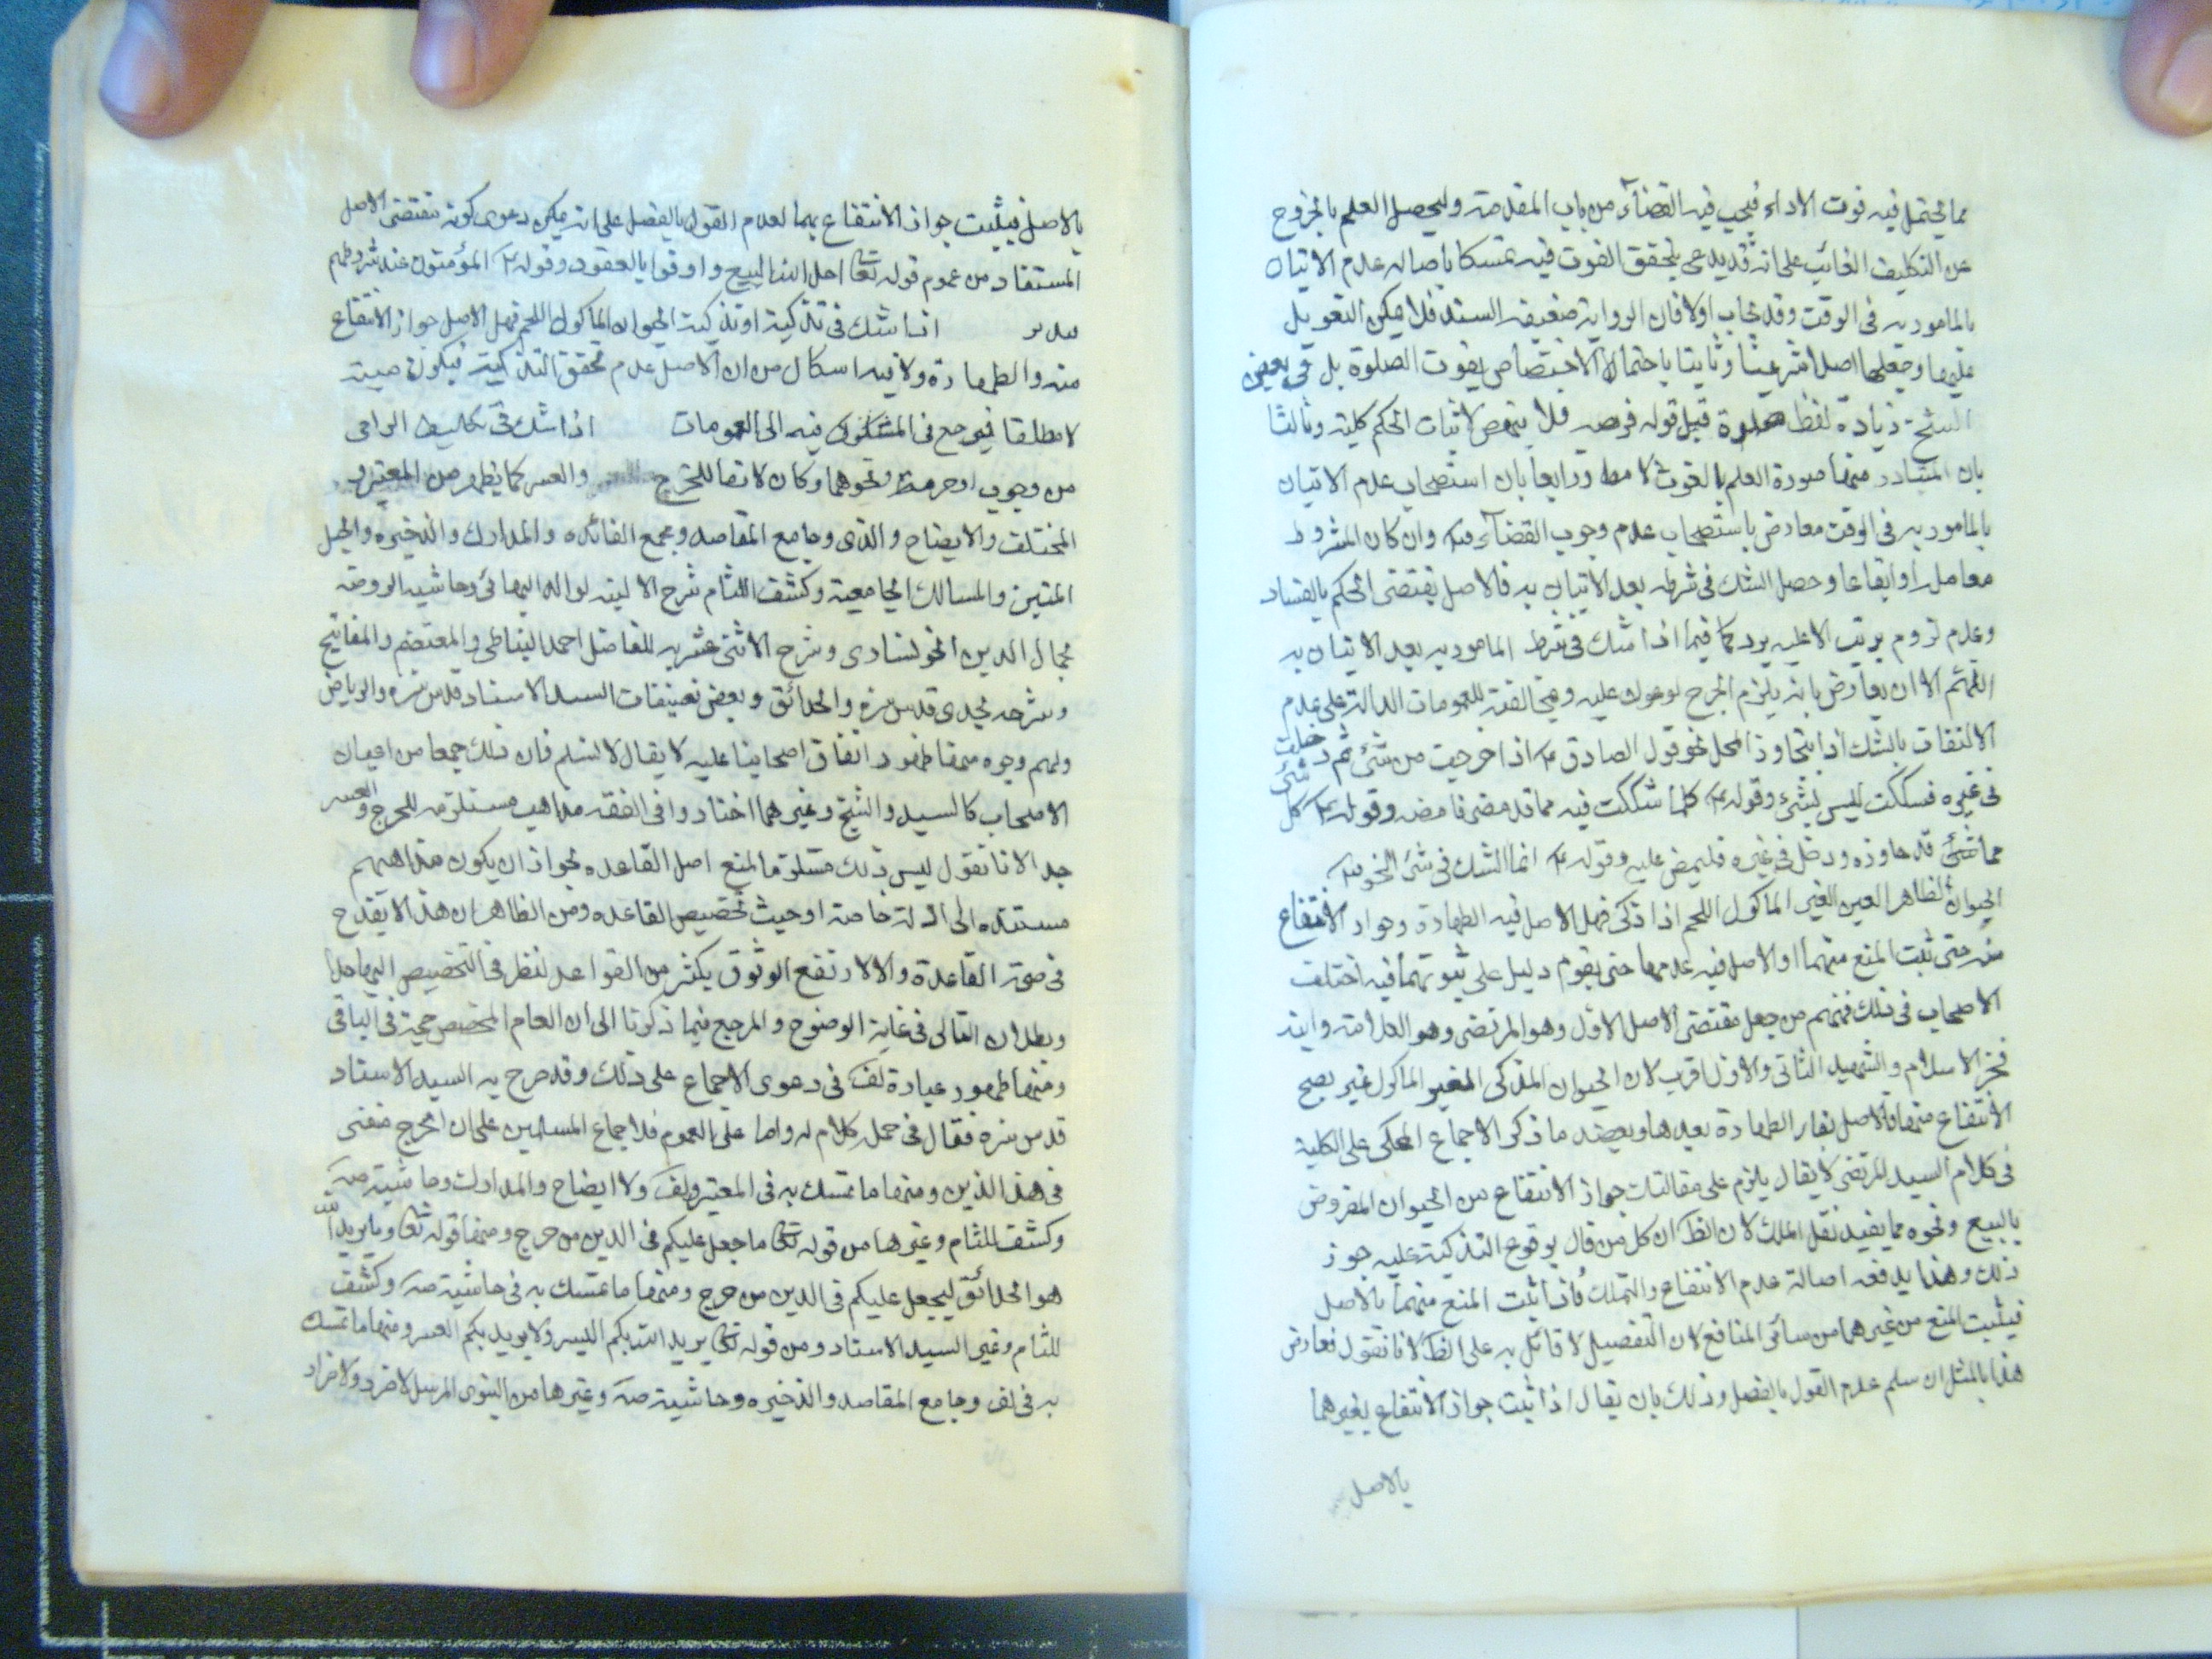 مما يحتمل فيه فوت الاداء فيجب فيه القضاء من باب المقدمة وليحصل العلم بالخروج
عن التكليف الغائب على انه قد يدعى تحقق الفوت فيه تمسكا باصالة عدم الاتيان
بالمامور به فى الوقت وقد يجاب اولا فان الرواية ضعيفة السند فلا يمكن التعويل
عليها وجعلها اصلا شرعيا وثانيا باحتمال الاختصاص بفوت الصلوة بل فى بعض
النسخ زيادة لفظ صلوة قبل قوله فلا ينهض لاثبات الحكم كلية وثالثا
بان المتبادر منها صورة العلم بالفوت لا مط ورابعا بان استصحاب عدم الاتيان
بالمامور به فى الوقت معارض باستصحاب عدم وجوب القضاء وان كان المشروط
معاملة او ايقاعا وحصل الشك فى شرطه بعد الاتيان به فالاصل يقتضى الحكم بالفساد
وعدم لزوم الا عليه يرد كما فيما اذا شك فى شرط المامور به بعد الاتيان به
اللهم الا ان يعارض بانه يلزم الحرج لو عول عليه ومخالفته للعمومات الدالة على عدم
الالتفات بالشك اذا تجاوز المحل نحو قول الصادق ع اذا خرجت من شئ ثم دخلت
فى غيره فشككت ليس بشئ وقوله ع كلما شككت فيه مما قد مضى فامضه وقوله ع كل شئ
مما شك قد جاوزه ودخل فى غيره فليمض عليه وقوله ع انما الشك فى شئ
الحيوان الظاهر العين الغير الماكول اللحم اذا ذكى فهل الاصل فيه الطهارة وجواز الانتفاع
منه حتى ثبت المنع منهما او الاصل فيه عدمهما حتى يقوم دليل على ثبوتهما فيه اختلف
الاصحاب فى ذلك فمنهم من جعل مقتضى الاصل الاول وهو المرتضى وهو العلامة وابنه
فخر الاسلام والشهيد الثانى والاول اقرب لان الحيوان المذكى الغير الماكول غير يصح
الانتفاع منها فالاصل بقاء الطهارة بعدها ويعضد ما ذكر الاجماع المحكى على الكلية
فى كلام السيد المرتضى لا يقال يلزم على مقالتك جواز الانتفاع من الحيوان المفروض
بالبيع ونحوه مما يفيد نقل الملك لان الظ ان كل من قال بوقوع التذكية عليه جوز
ذلك وهذا يدفعه اصالة عدم الانتفاع والتملك فاذا ثبت المنع منهما بالاصل
فيثبت المنع من غيرهما من سائر المنافع لان التفصيل لا قائل به على الظ لانا نقول نعارض
هذا بالمثل ان سلم عدم القول بالفصل وذلك بان يقال اذا ثبت جواز الانتفاع بغيرهما
بالاصل
بالاصل فيثبت جواز الانتفاع بهما لعدم القول بالفصل على انه يمكن دعوى كونه مقتضى الاصل
المستفاد من عموم قوله تعا احل الله البيع واوفوا بالعقود وقوله ع المؤمنون عند شروطهم
اذا شك فى تذكية او تذكية الحيوان الماكول اللحم فهل الاصل جواز الانتفاع
منه والطهارة ولا فيه اشكال من ان الاصل عدم تحقق التذكية فيكون ميتة
لا مطلقا فيرجع فى المشكوك فيه الى العمومات اذا شك فى تكليف الزامى
من وجوب او حرمة ونحوهما وكان لازما للحرج والعسر كما يظهر من المعتبر و
المختلف والايضاح والذكرى وجامع المقاصد ومجمع الفائده والمدارك والذخيره والحبل
المتين والمسالك الجامعية وكشف اللثام شرح الالفية لوالد البهائى وحاشية الروضه
لجمال الدين الخونسارى وشرح الاثنى عشريه للفاضل احمد النباطى والمعتصم والمفاتيح
وشرحه لجدى قدس سره والحدائق وبعض تصنيفات السيد الاستاد قدس سره والرياض
ولهم وجوه منها ظهور اتفاق اصحابنا عليه لا يقال لا نسلم فان ذلك جمعا من اعيان
الاصحاب كالسيد والشيخ وغيرهما اختاروا فى الفقه مذاهب مستلزمه للحرج والعسر
جدا لانا نقول ليس ذلك مستلزما لمنع اصل القاعده لجواز ان يكون مذاهبهم
مستنده الى ادلة خاصة اوجبت تخصيص القاعده ومن الظاهر ان هذا لا يقدح
فى صحة القاعدة والا لارتفع الوثوق بكثير من القواعد لنظر فى التخصيص اليها جدا
وبطلان التالى فى غاية الوضوح والمرجع فيما ذكرنا الى ان العام المخصص حجة فى الباقى
ومنها ظهور عبارة لف فى دعوى الاجماع على ذلك وقد صرح به السيد الاستاد
قدس سره فقال فى جملة كلام له واما على العموم فلاجماع المسلمين على ان الحرج منفى
فى هذا الدين ومنها ما تمسك به فى المعتبر ولف ولا ايضاح والمدارك وحاشيته
وكشف اللثام وغيرها من قوله تعا ما جعل عليكم فى الدين من حرج ومنها قوله تعا وما يريد الله
هو الحدائق ليجعل عليكم فى الدين من حرج ومنها ما تمسك به فى حاشية وكشف
للثام وغير السيد الاستاد ومن قوله تعا يريد الله بكم اليسر ولا يريد بكم العسر ومنها ما تمسك
به فى لف وجامع المقاصد والذخيره وحاشية وغيرها من النبوى المرسل لا ضرر ولا ضرار